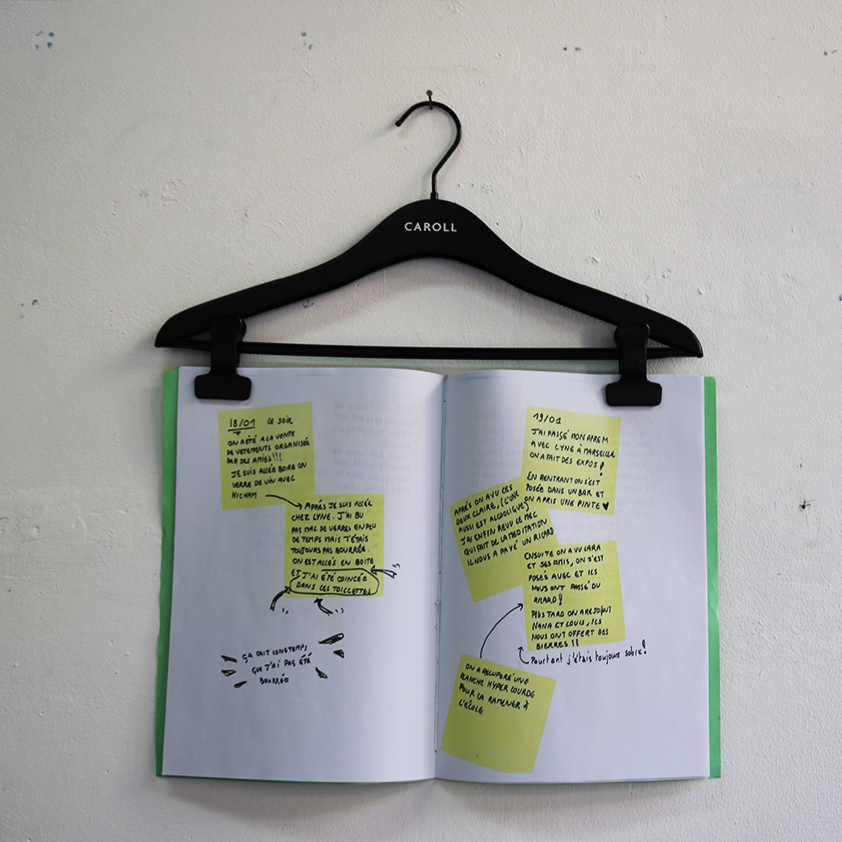 CAROLL
18/01 CE SOIR
ON A ÉTÉ A LA VENTE
DE VETEMENTS ORGANISÉE
PAR DES AMIES!!!
JE SUIS ALLÉE BOIRE UN
VERRE DE VIN AVEC
HICHAM
APRÉS JE SUIS ALLÉE
CHEZ LYNE. J'AI BU
PAS MAL DE VERRES EN PEU
DE TEMPS MAIS J'ÉTAIS
TOUJOURS PAS BOURRÉE.
ON EST ALLÉS EN BOITE
ET J'AI ÉTÉ COINCÉE
DANS LES TOILETTES
ÇA FAIT LONGTEMPS
QUE J'AI PAS ÉTÉ
BOURRÉE
19/01
J'AI PASSÉ MON APREM
AVEC LYNE À MARSEILLE
ON A FAIT DES EXPOS!
EN RENTRANT ON S'EST
POSÉE DANS UN BAR ET
ON A PRIS UNE PINTE ♥
APRÉS ON A VU LES
DEUX CLAIRE, (L'UNE
AUSSI EST ALCOOLIQUE)
J'AI ENFIN REVU LE MEC
QUI FAIT DE LA MEDITATION
IL NOUS A PAYÉ UN RICARD
ENSUITE ON A VU LARA
ET SES AMIS, ON S'EST
POSÉS AVEC ET ILS
NOUS ONT PASSÉ DU
RICARD!
PLUS TARD ON A REJOINT
NANA ET LOUIS, ILS
NOUS ONT OFFERT DES
BIERRES!!
Pourtant j'étais toujours sobre!
ON A RECUPERÉ UNE
PLANCHE HYPER LOURDE
POUR LA RAMENER À
L'ÉCOLE